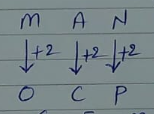 M A N
↓+2 ↓+2 ↓+2
O C P